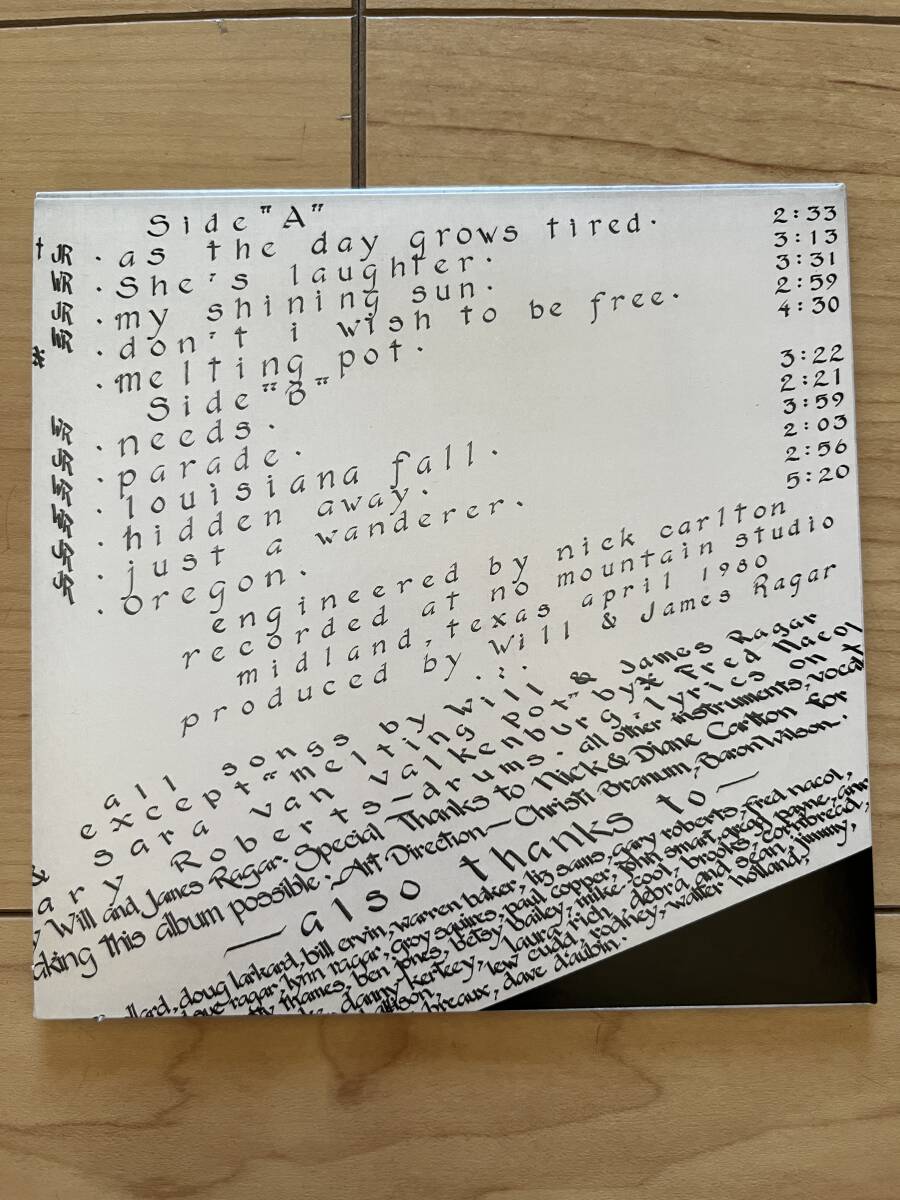 Side "A"
· as the day grows tired. 2:33
· she's laughter. 3:13
· my shining sun. 3:31
· don't i wish to be free. 2:59
· melting pot. 4:30
Side "B"
· needs. 3:22
· parade. 2:21
· louisiana fall. 3:59
· hidden away. 2:03
· just a wanderer. 2:56
· oregon. 5:20
engineered by nick carlton
recorded at no mountain studio
midland, texas april 1980
produced by Will & James Ragar
all songs by Will & James Ragar
& except "melting pot" * Fred Nacol
sara van valkenburg. lyrics on
ary Roberts — drums. all other instruments, vocal
y Will and James Ragar. Special Thanks to Nick & Diane Carlton for
aking this album possible. Art Direction — Christi Branum, Baron Wilson.
— also thanks to —
llard, doug larkard, bill ervin, warren baker, liz sams, gary roberts, fred nacol,
ragar, lynn ragar, groy squires, paul copper, john smart, greg payne, ann
thames, ben jones, betsy bailey, mike cool, brooks, cornbread,
danny kerley, laura, debra and sean, jimmy,
lew cudd, rich, rodney, walter holland,
breaux, dave d'aubin.